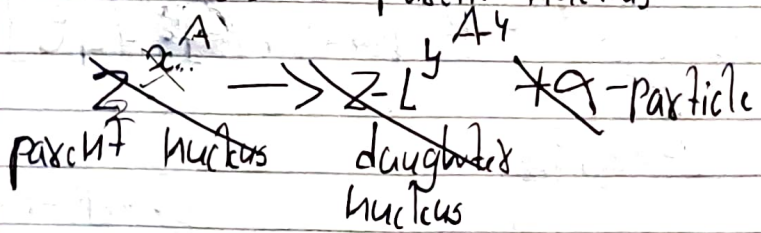 A A4
Z x → Z-L y +α-particle
parent nuckus daughter
nucleus